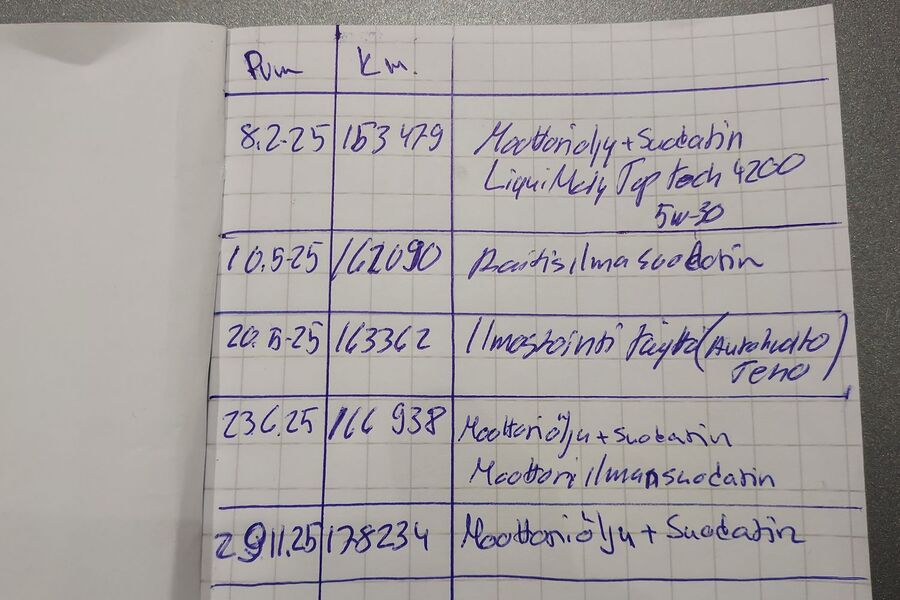 Pvm Km.
8.2-25 153 479 Moottoriöljy + Suodatin
Liqui Moly Top tech 4200
5w-30
10.5-25 162090 Raitisilmasuodatin
20.5-25 163362 Ilmastointi täyttö (Autohuolto
Teho)
23.6.25 166 938 Moottoriöljy + Suodatin
Moottori ilmansuodatin
29.11.25 178234 Moottoriöljy + Suodatin